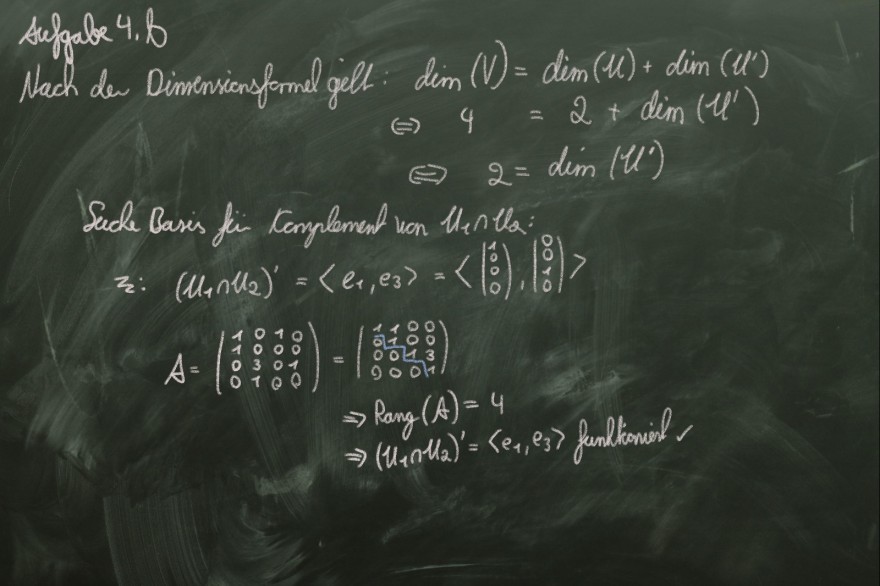 Aufgabe 4.b
Nach der Dimensionsformel gelt: dim (V) = dim (U) + dim (U')
⇔ 4 = 2 + dim (U')
⇔ 2 = dim (U')
Suche Basis für Komplement von U₁∩U₂:
z: (U₁∩U₂)' = <e₁, e₃> = <(1 0 0 0), (0 0 1 0)>
A = (1 0 1 0 / 1 0 0 0 / 0 3 0 1 / 0 1 0 0) = (1 1 0 0 / 0 1 0 0 / 0 0 1 3 / 0 0 0 1)
⇒ Rang (A) = 4
⇒ (U₁∩U₂)' = <e₁, e₃> funktioniert ✓